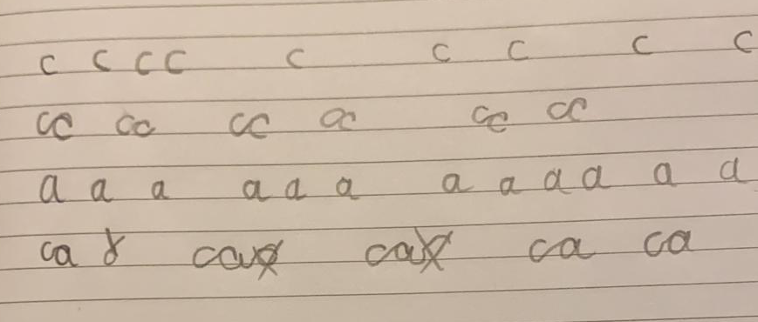 c c c c c c c c c
cc cc cc cc cc cc
a a a a a a a a a a a a
ca ca ca ca ca